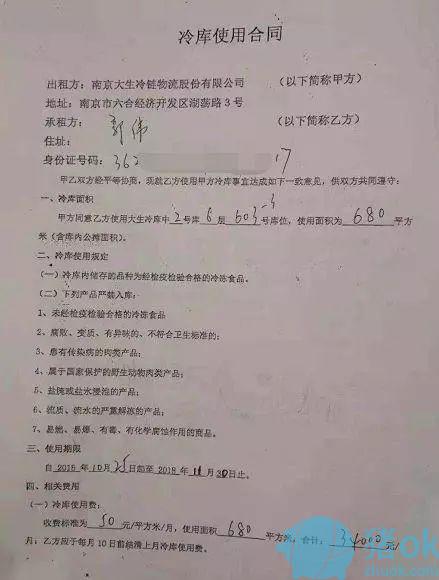 冷库使用合同
出租方：南京大生冷链物流股份有限公司 （以下简称甲方）
地址：南京市六合经济开发区湖荡路3号
承租方：郭伟 （以下简称乙方）
住址：
身份证号码：362 17
甲乙双方经平等协商，现就乙方使用甲方冷库事宜达成如下一致意见，供双方共同遵守：
一、冷库面积
甲方同意乙方使用大生冷库中2号库6层603-3号库位，使用面积为680平方
米（含库内公摊面积）。
二、冷库使用规定
（一）冷库内储存的品种为经检疫检验合格的冷冻食品。
（二）下列产品严禁入库：
1、未经检疫检验合格的冷冻食品
2、腐败、变质、有异味的、不符合卫生标准的；
3、患有传染病的肉类产品；
4、属于国家保护的野生动物肉类产品；
5、盐腌或盐水浸泡的产品；
6、流质、流水的严重解冻的产品；
7、易燃、易爆、有毒、有化学腐蚀作用的商品。
三、使用期限
自2018年10月25日起至2018年11月30日止。
四、相关费用
（一）冷库使用费：
收费标准为50元/平方米/月，使用面积680平方米，合计：34000元/
月；乙方应于每月10日前结清上月冷库使用费。
猪ok
zhuok.com